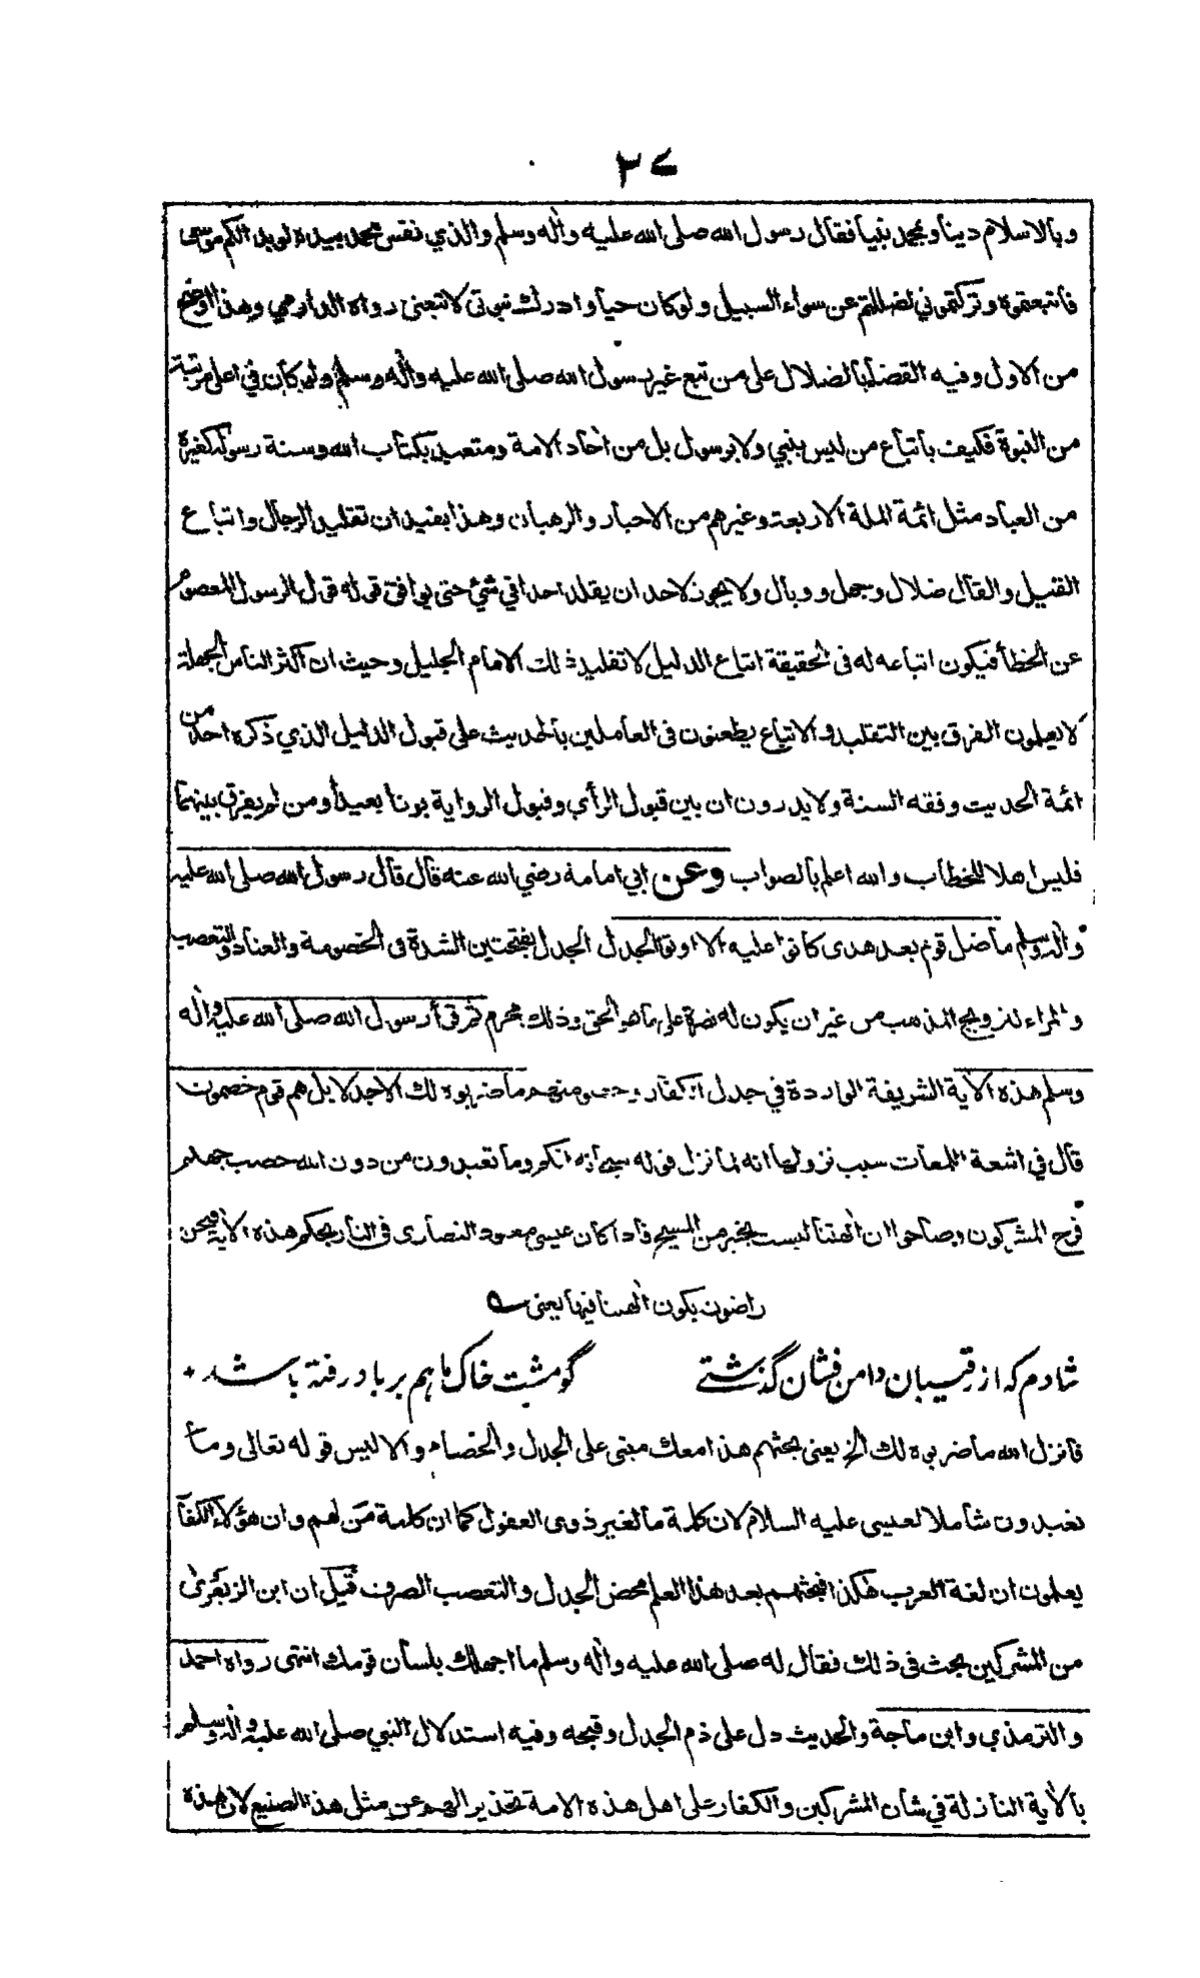 ٣٧
وبالاسلام دينا وبمحمد نبيا فقال رسول الله صلى الله عليه واٰله وسلم والذي نفس محمد بيده لوبدا لكم موسى
فاتبعتموه وتركتموني لضللتم عن سواء السبيل ولو كان حيا وادرك نبوتى لاتبعنى رواه الدارمي وهذا اوضح
من الاول وفيه القضاء بالضلال على من تبع غير رسول الله صلى الله عليه واٰله وسلم ولو كان في اعلى مرتبة
من النبوة فكيف باتباع من ليس بنبي ولا برسول بل من اٰحاد الامة ومتعبد بكتاب الله وسنة رسوله كغيره
من العباد مثل ائمة الملة الاربعة وغيرهم من الاحبار والرهبان وهذا يفيد ان تقليد الرجال واتباع
القيل والقال ضلال وجهل ووبال ولا يجوز لاحد ان يقلد احدا في شئ حتى يوافق قوله قول الرسول المعصوم
عن الخطأ فيكون اتباعه له فى الحقيقة اتباع الدليل لا تقليد ذلك الامام الجليل وحيث ان اكثر الناس الجهلة
لا يعلمون الفرق بين التقليد والاتباع يطعنون فى العاملين بالحديث على قبول الدليل الذي ذكره احد من
ائمة الحديث وفقه السنة ولا يدرون ان بين قبول الرأي وقبول الرواية بونا بعيدا ومن لم يفرق بينهما
فليس اهلا للخطاب والله اعلم بالصواب وعن ابي امامة رضي الله عنه قال قال رسول الله صلى الله عليه
واٰله وسلم ما ضل قوم بعد هدى كانوا عليه الا اوتوا الجدل الجدل بفتحتين الشدة فى الخصومة والعناد والتعصب
والمراء لترويج المذهب من غير ان يكون له نصرة على ما هو الحق وذلك محرم ثم قرأ رسول الله صلى الله عليه واٰله
وسلم هذه الاٰية الشريفة الواردة في جدل الكفار وخصومتهم ما ضربوه لك الا جدلا بل هم قوم خصمون
قال في اشعة اللمعات سبب نزولها انه لما نزل قوله سبحانه انكم وما تعبدون من دون الله حصب جهنم
فرح المشركون وصاحوا ان اٰلهتنا ليست بخير من المسيح فاذا كان عيسى معبود النصارى فى النار بحكم هذه الاٰية فنحن
راضون بكون اٰلهتنا فيها يعنى ؎
شادم كه از رقيبان دامن فشان گذشتے گو مشت خاك ما هم بر باد رفته باشد ٭
فانزل الله ما ضربوه لك الخ يعنى بحثهم هذا معك مبنى على الجدل والخصام والا ليس قوله تعالى وما
تعبدون شاملا لعيسى عليه السلام لان كلمة ما لغير ذوى العقول كما ان كلمة مَن لهم وان هؤلاء الكفار
يعلمون ان لغة العرب هكذا فبحثهم بعد هذا العلم محض الجدل والتعصب الصرف قيل ان ابن الزبعرى
من المشركين بحث فى ذلك فقال له صلى الله عليه واٰله وسلم ما اجهلك بلسان قومك انتهى رواه احمد
والترمذي وابن ماجة والحديث دل على ذم الجدل وقبحه وفيه استدلال النبي صلى الله عليه واٰله وسلم
بالاٰية النازلة في شان المشركين والكفار على اهل هذه الامة تحذيرا لهم عن مثل هذا الصنيع لان هذه